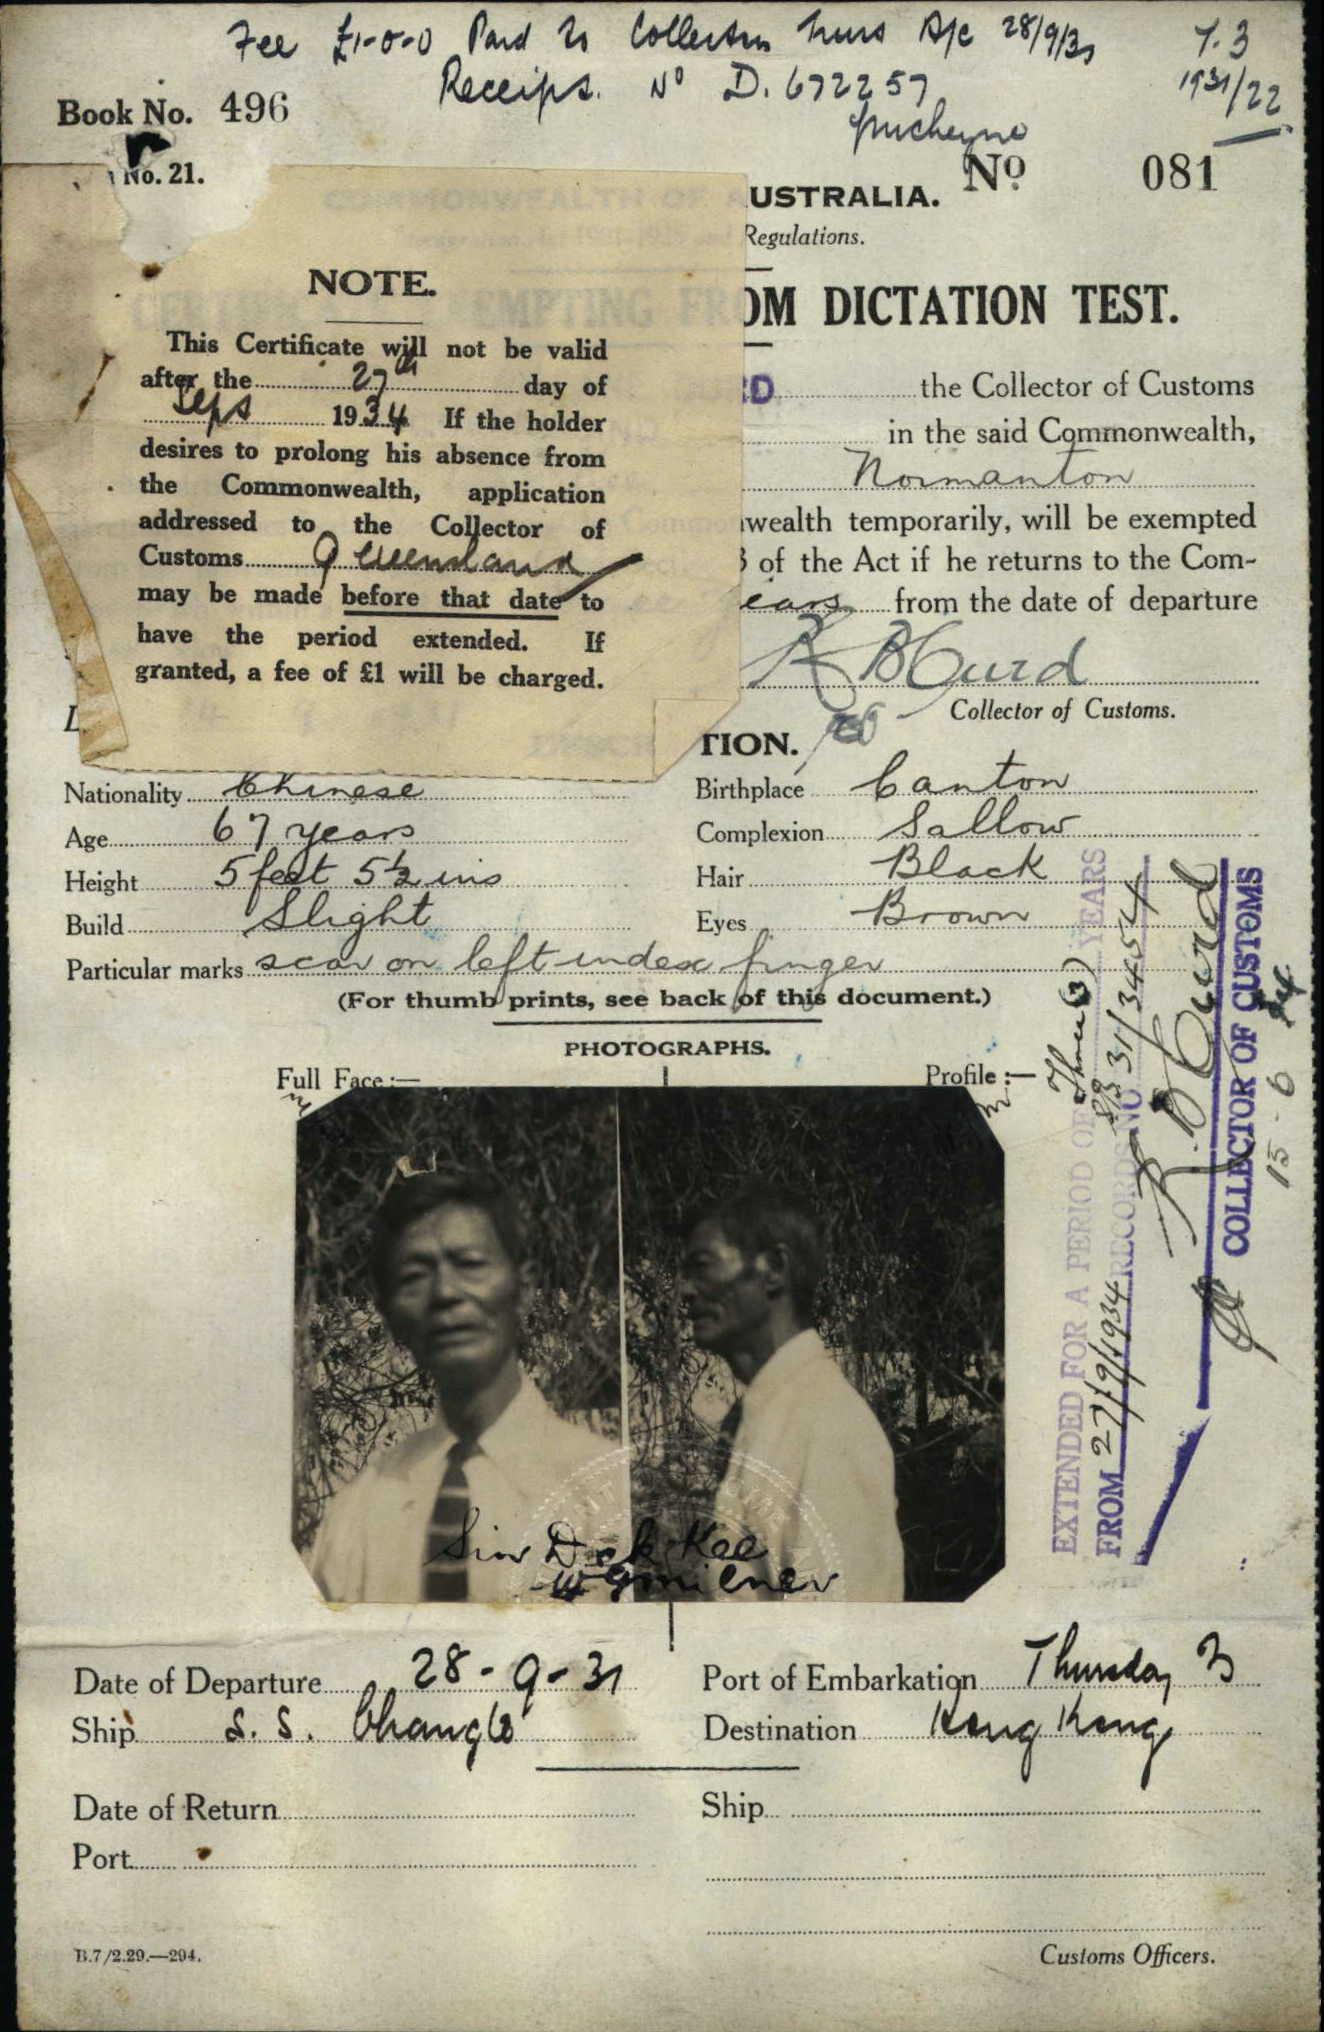 Fee £1-0-0 Paid to Collector Thurs A/c 28/9/31
T.3
Receipt. No D. 672257
1931/22
Book No. 496
No. 21.
No 081
COMMONWEALTH OF AUSTRALIA.
Regulations.
NOTE.
EMPTING FROM DICTATION TEST.
This Certificate will not be valid
after the 27th day of
Sept 1934 If the holder
desires to prolong his absence from
the Commonwealth, application
addressed to the Collector of
Customs Queensland
may be made before that date to
have the period extended. If
granted, a fee of £1 will be charged.
RD the Collector of Customs
in the said Commonwealth,
Normanton
wealth temporarily, will be exempted
of the Act if he returns to the Com-
ears from the date of departure
R B Curd
Collector of Customs.
TION.
Nationality Chinese
Birthplace Canton
Age 67 years
Complexion Sallow
Height 5 feet 5½ ins
Hair Black
Build Slight
Eyes Brown
Particular marks scar on left index finger
(For thumb prints, see back of this document.)
PHOTOGRAPHS.
Full Face:—
Profile:—
Sin Dek Kee
W G Milner
EXTENDED FOR A PERIOD OF Three (3) YEARS
FROM 27/9/1934 RECORDS NO 31/34454
R. B Curd
COLLECTOR OF CUSTOMS
Date of Departure 28-9-31
Port of Embarkation Thursday
Ship S. S. Changte
Destination Hong Kong
Date of Return
Ship
Port
B.7/2.29.—294.
Customs Officers.